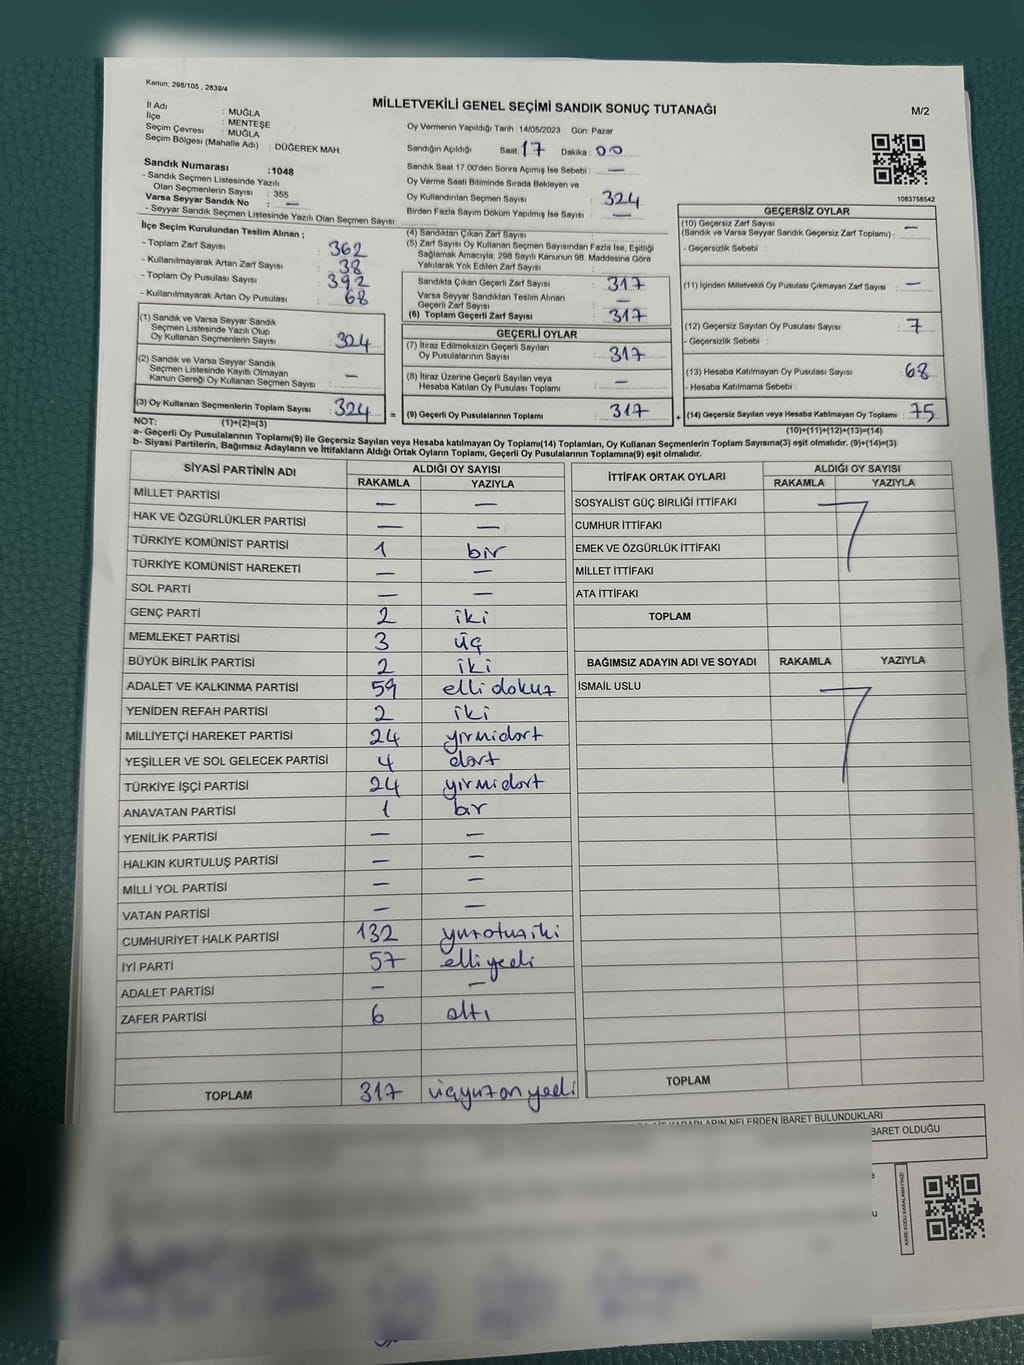 Kanun: 298/105 , 2839/4
MİLLETVEKİLİ GENEL SEÇİMİ SANDIK SONUÇ TUTANAĞI
M/2
İl Adı : MUĞLA
İlçe : MENTEŞE
Seçim Çevresi : MUĞLA
Seçim Bölgesi (Mahalle Adı) : DÜĞEREK MAH.
Sandık Numarası :1048
- Sandık Seçmen Listesinde Yazılı
Olan Seçmenlerin Sayısı : 355
Varsa Seyyar Sandık No : —
- Seyyar Sandık Seçmen Listesinde Yazılı Olan Seçmen Sayısı:
Oy Vermenin Yapıldığı Tarih : 14/05/2023 Gün: Pazar
Sandığın Açıldığı Saat: 17 Dakika: 00
Sandık Saat 17.00'den Sonra Açımış İse Sebebi : —
Oy Verme Saati Bitiminde Sırada Bekleyen ve
Oy Kullandırılan Seçmen Sayısı : 324
Birden Fazla Sayım Döküm Yapılmış İse Sayısı : —
1083758542
İlçe Seçim Kurulundan Teslim Alınan ;
- Toplam Zarf Sayısı : 362
- Kullanılmayarak Artan Zarf Sayısı : 38
- Toplam Oy Pusulası Sayısı : 392
- Kullanılmayarak Artan Oy Pusulası : 68
(1) Sandık ve Varsa Seyyar Sandık
Seçmen Listesinde Yazılı Olup
Oy Kullanan Seçmenlerin Sayısı : 324
(2) Sandık ve Varsa Seyyar Sandık
Seçmen Listesinde Kayıtlı Olmayan
Kanun Gereği Oy Kullanan Seçmen Sayısı : —
(3) Oy Kullanan Seçmenlerin Toplam Sayısı : 324 =
(4) Sandıktan Çıkan Zarf Sayısı :
(5) Zarf Sayısı Oy Kullanan Seçmen Sayısından Fazla İse, Eşitliği
Sağlamak Amacıyla; 298 Sayılı Kanunun 98. Maddesine Göre
Yakılarak Yok Edilen Zarf Sayısı :
Sandıkta Çıkan Geçerli Zarf Sayısı : 317
Varsa Seyyar Sandıktan Teslim Alınan
Geçerli Zarf Sayısı : —
(6) Toplam Geçerli Zarf Sayısı : 317
GEÇERLİ OYLAR
(7) İtiraz Edilmeksizin Geçerli Sayılan
Oy Pusulalarının Sayısı : 317
(8) İtiraz Üzerine Geçerli Sayılan veya
Hesaba Katılan Oy Pusulası Toplamı : —
(9) Geçerli Oy Pusulalarının Toplamı : 317 +
GEÇERSİZ OYLAR
(10) Geçersiz Zarf Sayısı
(Sandık ve Varsa Seyyar Sandık Geçersiz Zarf Toplamı) : —
- Geçersizlik Sebebi :
(11) İçinden Milletvekili Oy Pusulası Çıkmayan Zarf Sayısı : —
(12) Geçersiz Sayılan Oy Pusulası Sayısı : 7
- Geçersizlik Sebebi :
(13) Hesaba Katılmayan Oy Pusulası Sayısı : 68
- Hesaba Katılmama Sebebi :
(14) Geçersiz Sayılan veya Hesaba Katılmayan Oy Toplamı : 75
NOT: (1)+(2)=(3) (10)+(11)+(12)+(13)=(14)
a- Geçerli Oy Pusulalarının Toplamı(9) ile Geçersiz Sayılan veya Hesaba katılmayan Oy Toplamı(14) Toplamları, Oy Kullanan Seçmenlerin Toplam Sayısına(3) eşit olmalıdır. (9)+(14)=(3)
b- Siyasi Partilerin, Bağımsız Adayların ve İttifakların Aldığı Ortak Oyların Toplamı, Geçerli Oy Pusulalarının Toplamına(9) eşit olmalıdır.
SİYASİ PARTİNİN ADI ALDIĞI OY SAYISI
RAKAMLA YAZIYLA
MİLLET PARTİSİ — —
HAK VE ÖZGÜRLÜKLER PARTİSİ — —
TÜRKİYE KOMÜNİST PARTİSİ 1 bir
TÜRKİYE KOMÜNİST HAREKETİ — —
SOL PARTİ — —
GENÇ PARTİ 2 iki
MEMLEKET PARTİSİ 3 üç
BÜYÜK BİRLİK PARTİSİ 2 iki
ADALET VE KALKINMA PARTİSİ 59 elli dokuz
YENİDEN REFAH PARTİSİ 2 iki
MİLLİYETÇİ HAREKET PARTİSİ 24 yirmidört
YEŞİLLER VE SOL GELECEK PARTİSİ 4 dört
TÜRKİYE İŞÇİ PARTİSİ 24 yirmidört
ANAVATAN PARTİSİ 1 bir
YENİLİK PARTİSİ — —
HALKIN KURTULUŞ PARTİSİ — —
MİLLİ YOL PARTİSİ — —
VATAN PARTİSİ — —
CUMHURİYET HALK PARTİSİ 132 yüzotuziki
İYİ PARTİ 57 elliyedi
ADALET PARTİSİ — —
ZAFER PARTİSİ 6 altı
TOPLAM 317 üçyüzonyedi
İTTİFAK ORTAK OYLARI ALDIĞI OY SAYISI
RAKAMLA YAZIYLA
SOSYALİST GÜÇ BİRLİĞİ İTTİFAKI
CUMHUR İTTİFAKI
EMEK VE ÖZGÜRLÜK İTTİFAKI
MİLLET İTTİFAKI
ATA İTTİFAKI
TOPLAM
BAĞIMSIZ ADAYIN ADI VE SOYADI RAKAMLA YAZIYLA
İSMAİL USLU
TOPLAM
NELERDEN İBARET BULUNDUKLARI
BARET OLDUĞU
KARE KODU KARALAMAYINIZ!